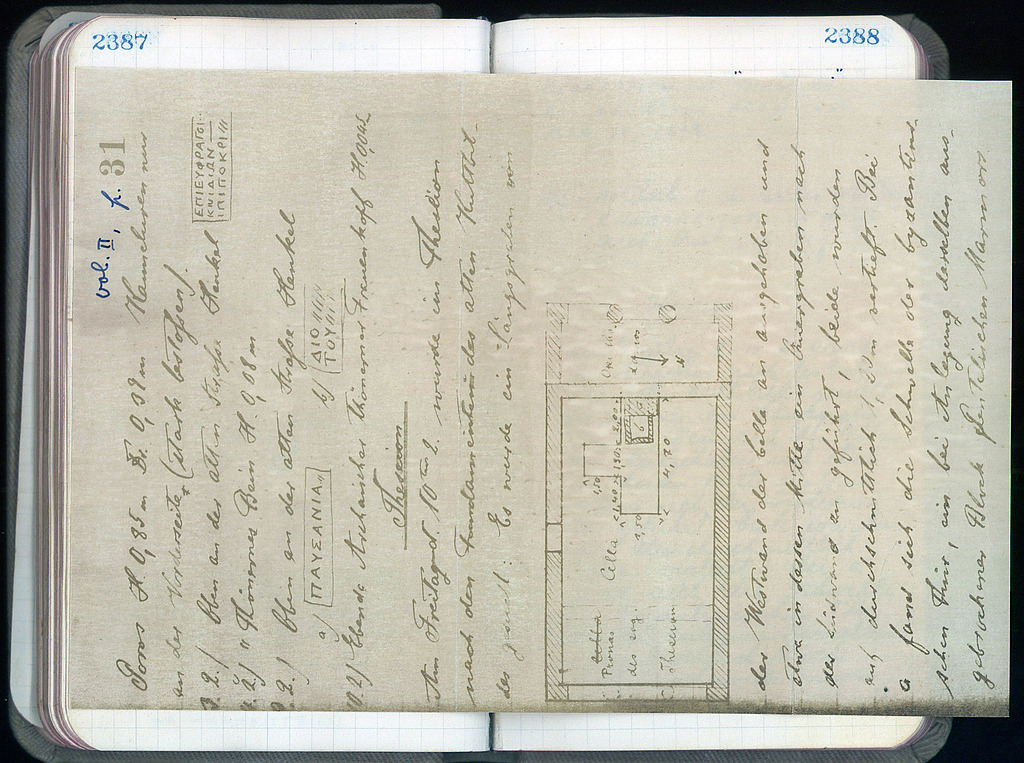 2387
2388
vol. II, p. 31
Poros H. 0,85 m Br. 0,39 m
an der Vorderseite (stark bestoßen).
ΕΠΙΕΥΦΡΑΓΟΙ
ΚΝΙΔΙΩΝ
ΙΠΠΟΚΡΙ
3. 2.) Oben an der alten Straße Henkel
2.) Thönernes Bein H. 0,08 m
2.) Oben an der alten Straße Henkel
a) ΠΑΥΣΑΝΙΑ
b) ΔΙΟ
ΤΟΥ
10. 2) Ebenda Archaischer thönerner Frauenkopf H. 0,042
Theseion
Am Freitag d. 10ten 2. wurde im Theseion
nach den Fundamenten des alten Kultbil-
des gesucht: Es wurde ein Längsgraben von
Cella
Pronaos
des sog.
Theseion
1,10
1,40
1,30
2,00
4,20
6
N
der Westwand der Cella an angehoben und
etwa in dessen Mitte ein Quergraben nach
der Südwand an geführt, beide wurden
auf durchschnittlich 1,20 m vertieft. Bei
a fand sich die Schwelle der byzantini-
schen Thür, ein bei Anlegung derselben aus-
gebrochener Block pentelischen Marmors